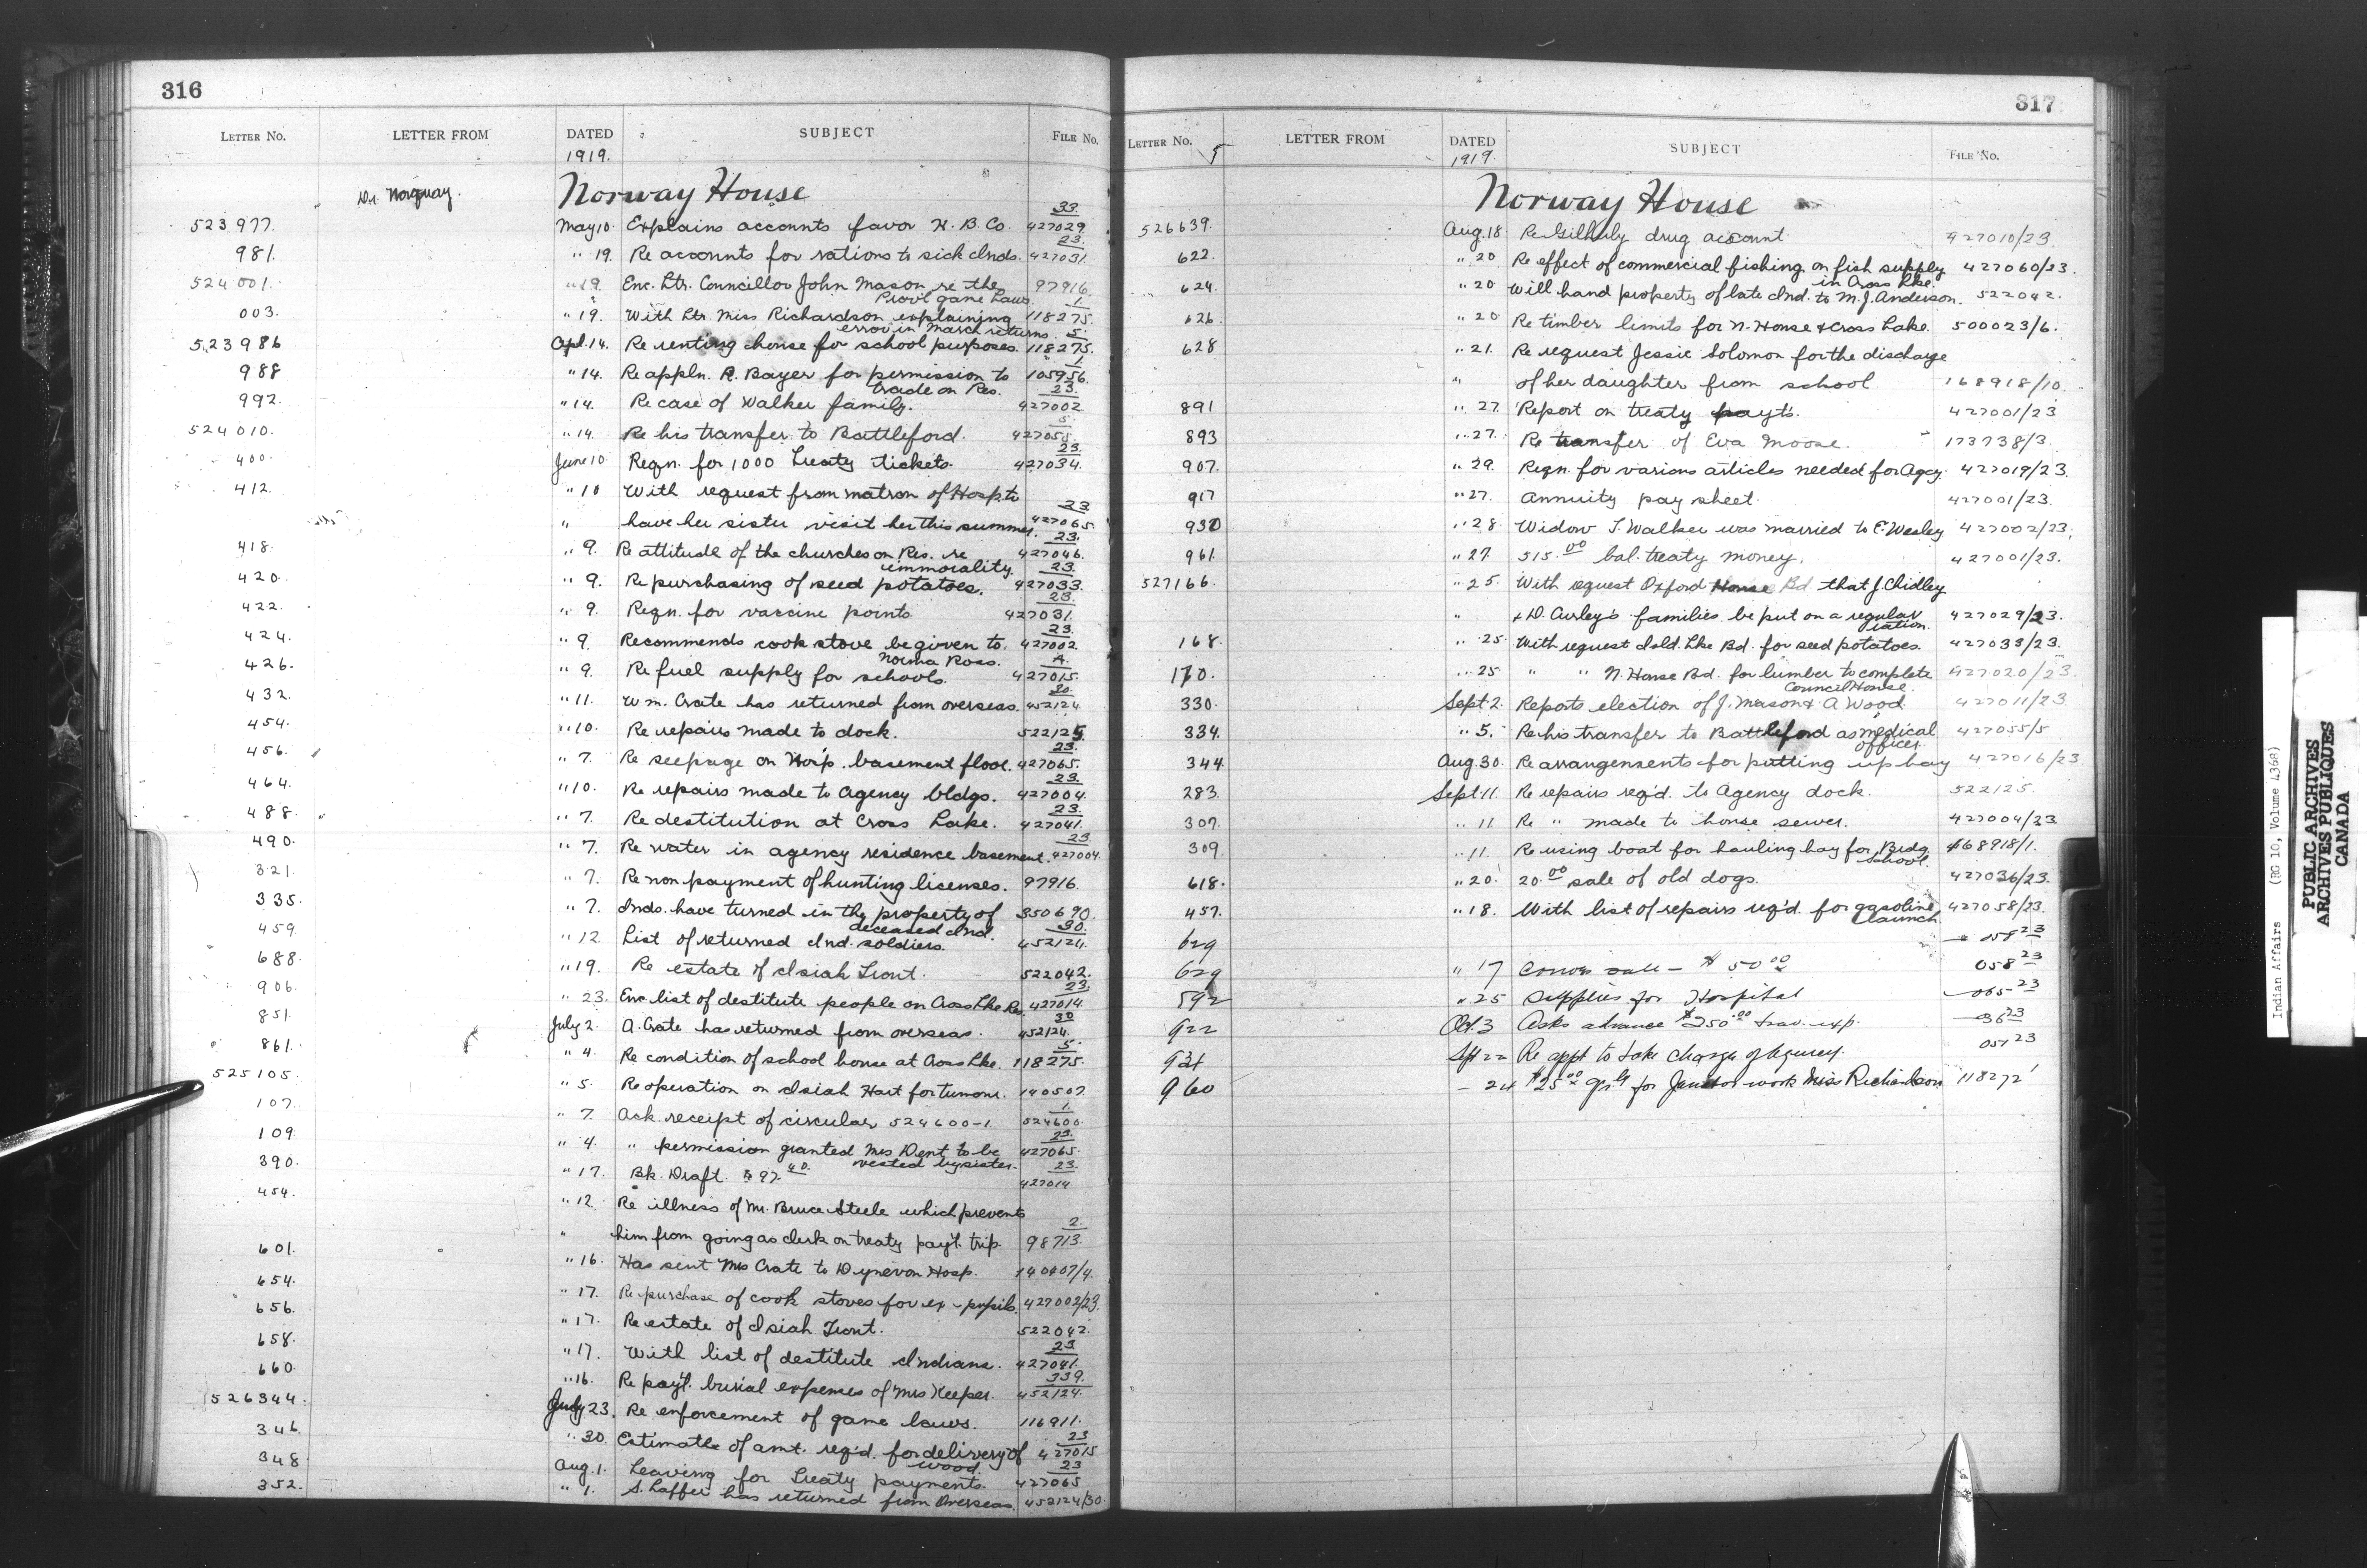 316
LETTER No. LETTER FROM DATED SUBJECT FILE No.
1919.
Dr. Norquay. Norway House
523977. May 10. Explains accounts favor H. B. Co. 427029/23.
981. " 19. Re accounts for rations to sick Inds. 427031/23.
524001. " 19. Enc. Ltr. Councillor John Mason re the 97916.
Prov'l game laws.
003. " 19. With Ltr. Miss Richardson explaining 118275/1.
error in March returns.
523986 Apl. 14. Re renting house for school purposes. 118275/5.
988 " 14. Re appln. R. Bayer for permission to 105956/1.
trade on Res.
992. " 14. Re case of Walker family. 427002/23.
524010. " 14. Re his transfer to Battleford. 427055/5.
400. June 10 Reqn. for 1000 Treaty tickets. 427034/23.
412. " 10 With request from matron of Hosp. to
" have her sister visit her this summer. 427065/23
418. " 9. Re attitude of the churches on Res. re 427046/23.
immorality.
420. " 9. Re purchasing of seed potatoes. 427033/23.
422. " 9. Reqn. for vaccine points. 427031/23.
424. " 9. Recommends cook stove be given to 427002/23.
Norma Ross.
426. " 9. Re fuel supply for schools. 427015/A.
432. " 11. Wm. Crate has returned from overseas. 452124/30.
454. " 10. Re repairs made to dock. 522125.
456. " 7. Re seepage on Hosp. basement floor. 427065/23.
464. " 10. Re repairs made to Agency bldgs. 427004/23.
488. " 7. Re destitution at Cross Lake. 427041/23.
490. " 7. Re water in agency residence basement. 427004/23
321. " 7. Re non payment of hunting licenses. 97916.
335. " 7. Inds. have turned in the property of 350690.
deceased Ind.
459. " 12. List of returned Ind. soldiers. 452124/30.
688. " 19. Re estate of Isiah Trout. 522042.
906. " 23. Enc list of destitute people on Cross Lke Res. 427014/23.
851. July 2. A. Crate has returned from overseas. 452124/30
861. " 4. Re condition of school house at Cross Lke. 118275/5.
525105. " 5. Re operation on Isiah Hart for tumour. 140507.
107. " 7. Ack. receipt of circular 524600-1. 524600/1.
109. " 4. " permission granted Mrs Dent to be 427065/23.
vested by sister.
390. " 17. Bk. Draft. $97.40. 427014/23.
454. " 12. Re illness of Mr. Bruce Steele which prevents
" him from going as clerk on treaty pay't. trip. 98713/2.
601. " 16. Has sent Mrs Crate to Dynevor Hosp. 140407/4.
654. " 17. Re purchase of cook stoves for ex-pupils. 427002/23.
656. " 17. Re estate of Isiah Trout. 522042.
658. " 17. With list of destitute Indians. 427041/23
660. " 16. Re pay't. burial expenses of Mrs Keeper. 452124/339.
526344. July 23. Re enforcement of game laws. 116911.
346. " 30. Estimate of amt. req'd. for delivery of 427015/23
wood.
348 Aug. 1. Leaving for Treaty payments. 427065/23
352. " 1. S. Laffer has returned from Overseas. 452124/30.
317
LETTER No. LETTER FROM DATED SUBJECT FILE No.
5 1919.
Norway House
526639. Aug. 18 Re Gilhuly drug account. 427010/23.
622. " 20 Re effect of commercial fishing on fish supply 427060/23.
in Cross Lke.
624. " 20 Will hand property of late Ind. to M. J. Anderson. 522042.
626. " 20 Re timber limits for N. House & Cross Lake. 500023/6.
628 " 21. Re request Jessie Solomon for the discharge
" of her daughter from school. 168918/10.
891 " 27. Report on treaty payts. 427001/23
893 " 27. Re transfer of Eva Moose. 173738/3.
907. " 29. Reqn. for various articles needed for Agcy. 427019/23.
917 " 27. Annuity pay sheet. 427001/23.
930 " 28. Widow T. Walker was married to E. Wesley 427002/23.
961. " 27. 515.00 bal. treaty money. 427001/23.
527166. " 25. With request Oxford House Bd that J. Chidley
" & D. Curley's families be put on a regular 427029/23.
ration.
168. " 25. With request Isld. Lke Bd. for seed potatoes. 427033/23.
170. " 25. " " N. House Bd. for lumber to complete 427020/23.
Council House.
330. Sept. 2. Reports election of J. Mason & A. Wood. 427011/23
334. " 5. Re his transfer to Battleford as medical 427055/5
officer.
344. Aug. 30. Re arrangements for putting up hay 427016/23
283. Sept. 11. Re repairs req'd. to Agency dock. 522125.
307. " 11. Re " made to house sewer. 427004/23
309. " 11. Re using boat for hauling hay for Brdg. 168918/1.
school.
618. " 20. 20.00 sale of old dogs. 427036/23.
457. " 18. With list of repairs req'd. for gasoline 427058/23.
launch.
629 058 23
629 " 17 Canoe sale — $50.00 058 23
592 " 25 Supplies for Hospital 065 23
922 Oct. 3 Asks advance $250.00 trav. exp. 36 23
934 Sept 22 Re appt to take charge of Agency. 051 23
960 — 24 $25.00 for Janitor work Miss Richardson 118272/1
Indian Affairs (RG 10, Volume 4368)
PUBLIC ARCHIVES
ARCHIVES PUBLIQUES
CANADA